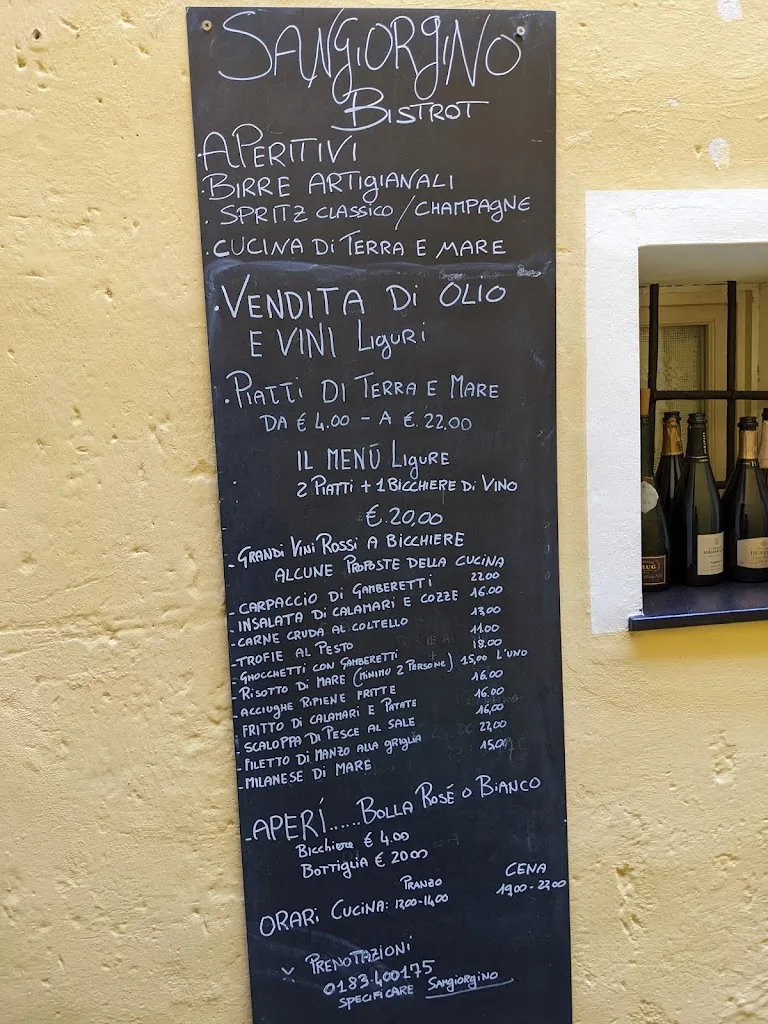 SANGIORGINO
BISTROT
APERITIVI
· BIRRE ARTIGIANALI
· SPRITZ CLASSICO / CHAMPAGNE
· CUCINA DI TERRA E MARE
· VENDITA DI OLIO
E VINI LIGURI
· PIATTI DI TERRA E MARE
DA € 4.00 - A €. 22,00
IL MENÚ LIGURE
2 PIATTI + 1 BICCHIERE DI VINO
€. 20,00
- GRANDI VINI ROSSI A BICCHIERE
ALCUNE PROPOSTE DELLA CUCINA
- CARPACCIO DI GAMBERETTI 22.00
- INSALATA DI CALAMARI E COZZE 16.00
- CARNE CRUDA AL COLTELLO 13.00
- TROFIE AL PESTO 11.00
- GNOCCHETTI CON GAMBERETTI 18.00
- RISOTTO DI MARE (MINIMO 2 PERSONE) 15,00 L'UNO
- ACCIUGHE RIPIENE FRITTE 16.00
- FRITTO DI CALAMARI E PATATE 16.00
- SCALOPPA DI PESCE AL SALE 16,00
- FILETTO DI MANZO ALLA GRIGLIA 22,00
- MILANESE DI MARE 15.00
- APERÍ......BOLLA ROSÉ O BIANCO
Bicchiere € 4.00
BOTTIGLIA € 20.00
PRANZO CENA
ORARI CUCINA: 12.00-14.00 19,00-22,00
X PRENOTAZIONI
0183.400175
SPECIFICARE SANGIORGINO